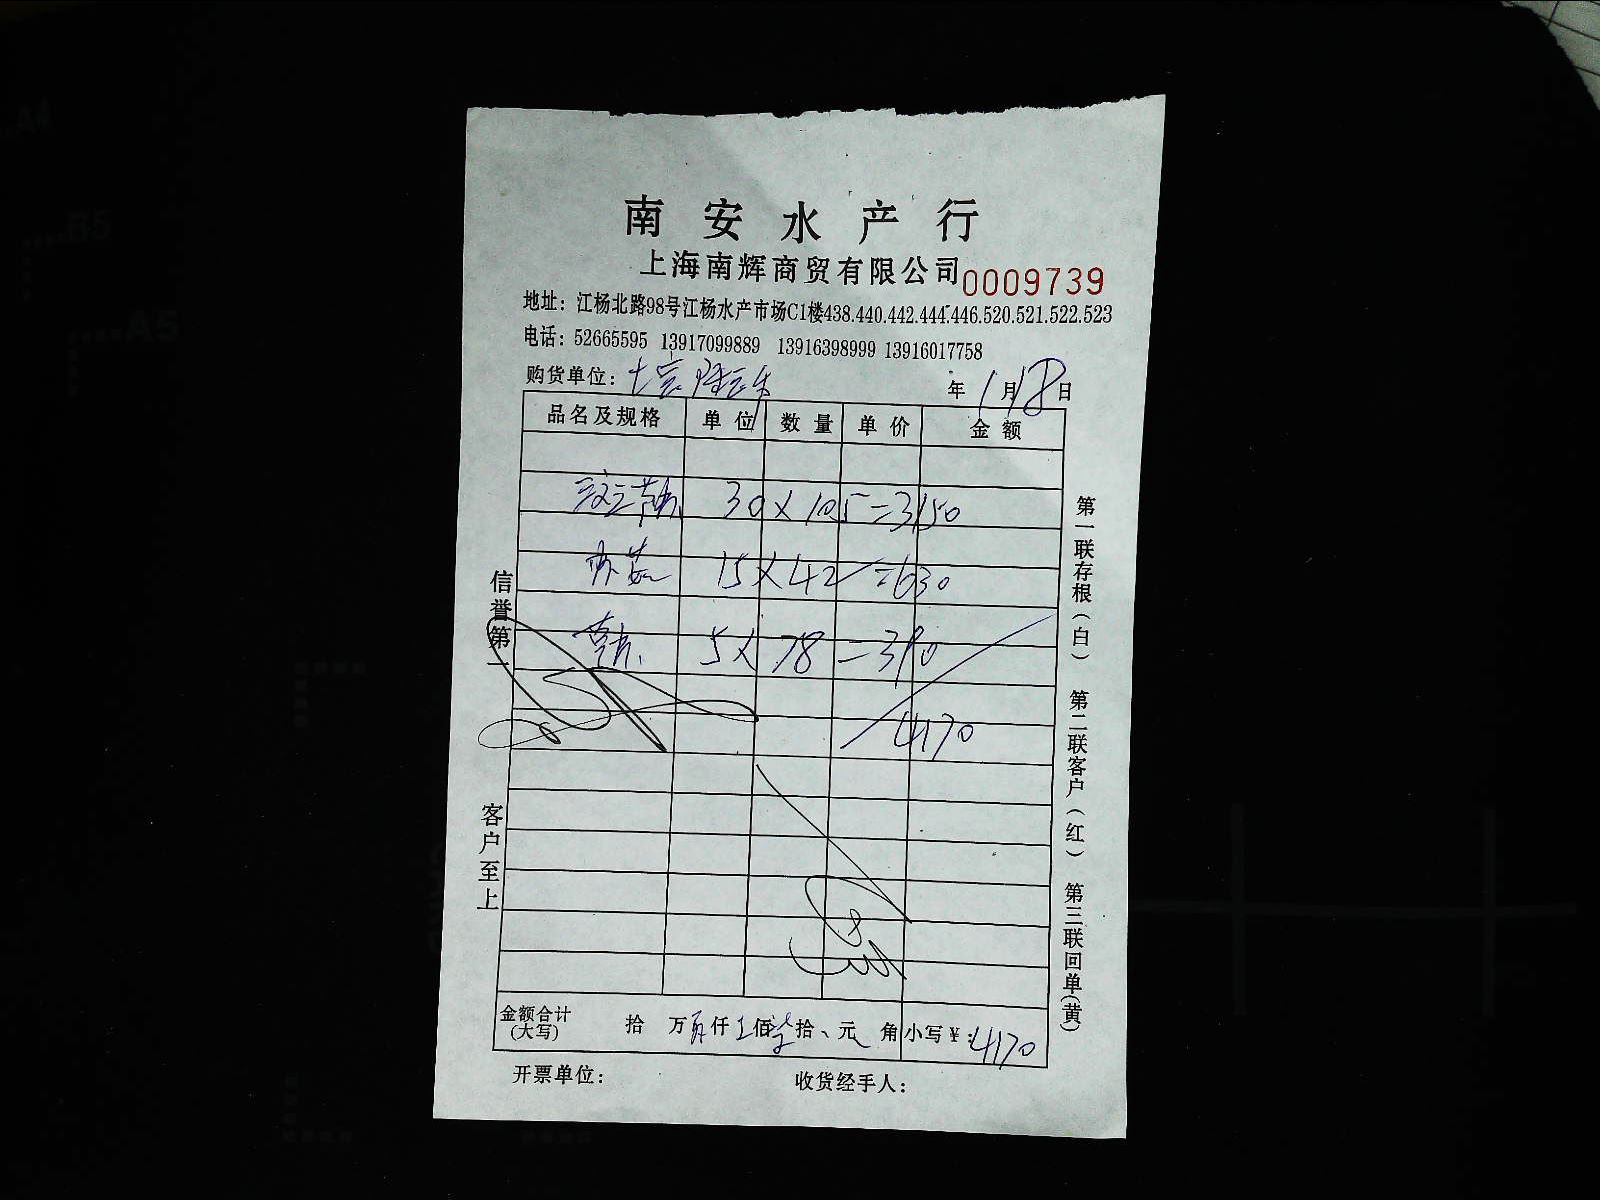 南安水产行
上海南辉商贸有限公司 0009739
地址：江杨北路98号江杨水产市场C1楼438.440.442.444.446.520.521.522.523
电话：52665595 13917099889 13916398999 13916017758
购货单位： 年 1 月 18 日
品名及规格 单位 数量 单价 金额
30 × 105 = 3150
15 × 42 = 630
5 × 78 = 390
4170
金额合计(大写) 拾 万 仟 佰 拾 元 角 小写￥：4170
开票单位： 收货经手人：
信誉第一
客户至上
第一联存根(白) 第二联客户(红) 第三联回单(黄)